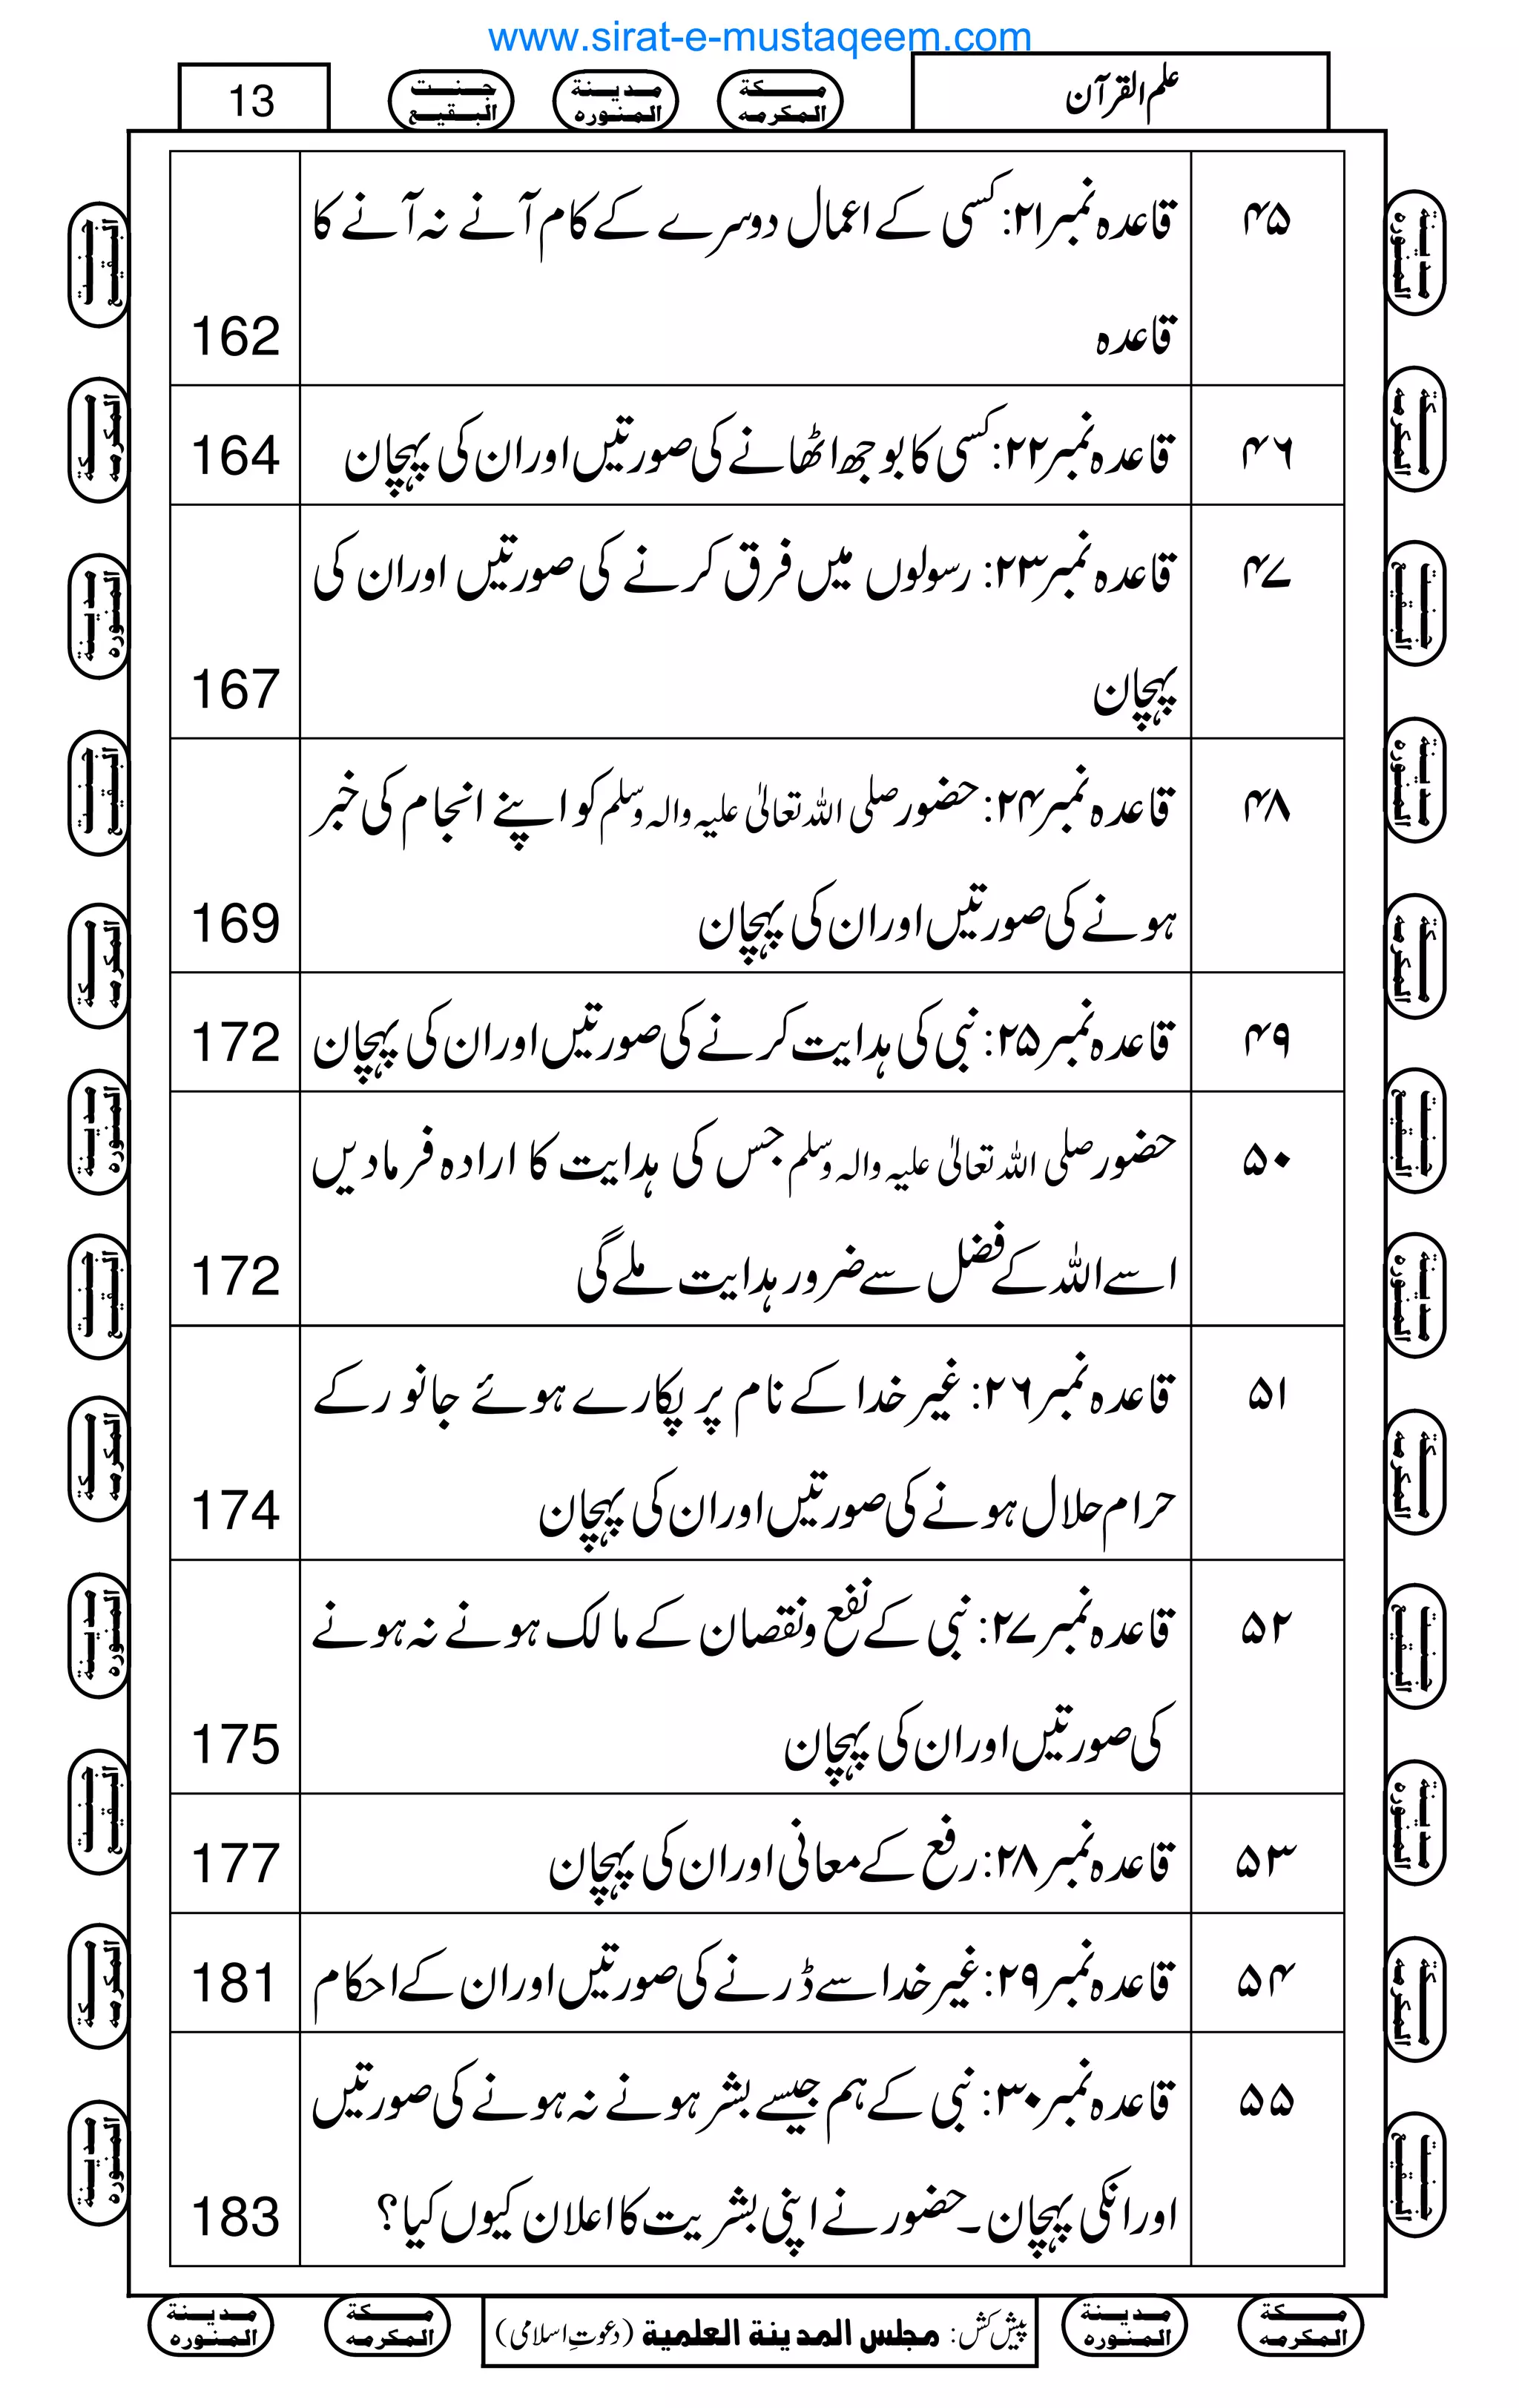 www.sirat-e-mustaqeem.com
علم القرآن
مكة المكرمه
مدينة المنوره
جنت البقيع
13
۴۵ قاعدہ نمبر۲۱: کسی کے اعمال دوسرے کے کام آنے نہ آنے کا
قاعدہ 162
۴۶ قاعدہ نمبر۲۲: کسی کا بوجھ اٹھانے کی صورتیں اور ان کی پہچان 164
۴۷ قاعدہ نمبر۲۳: رسولوں میں فرق کرنے کی صورتیں اور ان کی
پہچان 167
۴۸ قاعدہ نمبر۲۴: حضور صلی اللہ تعالیٰ علیہ والہ وسلم کو اپنے انجام کی خبر
ہونے کی صورتیں اور ان کی پہچان 169
۴۹ قاعدہ نمبر۲۵: نبی کی ہدایت کرنے کی صورتیں اور ان کی پہچان 172
۵۰ حضور صلی اللہ تعالیٰ علیہ والہ وسلم جس کی ہدایت کا ارادہ فرمادیں
اسے اللہ کے فضل سے ضرور ہدایت ملے گی 172
۵۱ قاعدہ نمبر۲۶: غیر خدا کے نام پر پکارے ہوئے جانور کے
حرام حلال ہونے کی صورتیں اور ان کی پہچان 174
۵۲ قاعدہ نمبر۲۷: نبی کے نفع ونقصان کے مالک ہونے نہ ہونے
کی صورتیں اور ان کی پہچان 175
۵۳ قاعدہ نمبر۲۸: رفع کے معانی اور ان کی پہچان 177
۵۴ قاعدہ نمبر۲۹: غیر خدا سے ڈرنے کی صورتیں اور ان کے احکام 181
۵۵ قاعدہ نمبر۳۰: نبی کے ہم جیسے بشر ہونے نہ ہونے کی صورتیں
اور انکی پہچان۔ حضور نے اپنی بشریت کا اعلان کیوں کیا؟ 183
مكة المكرمه
مدينة المنوره
پیش کش: مجلس المدينة العلمية (دعوتِ اسلامی)
مكة المكرمه
مدينة المنوره